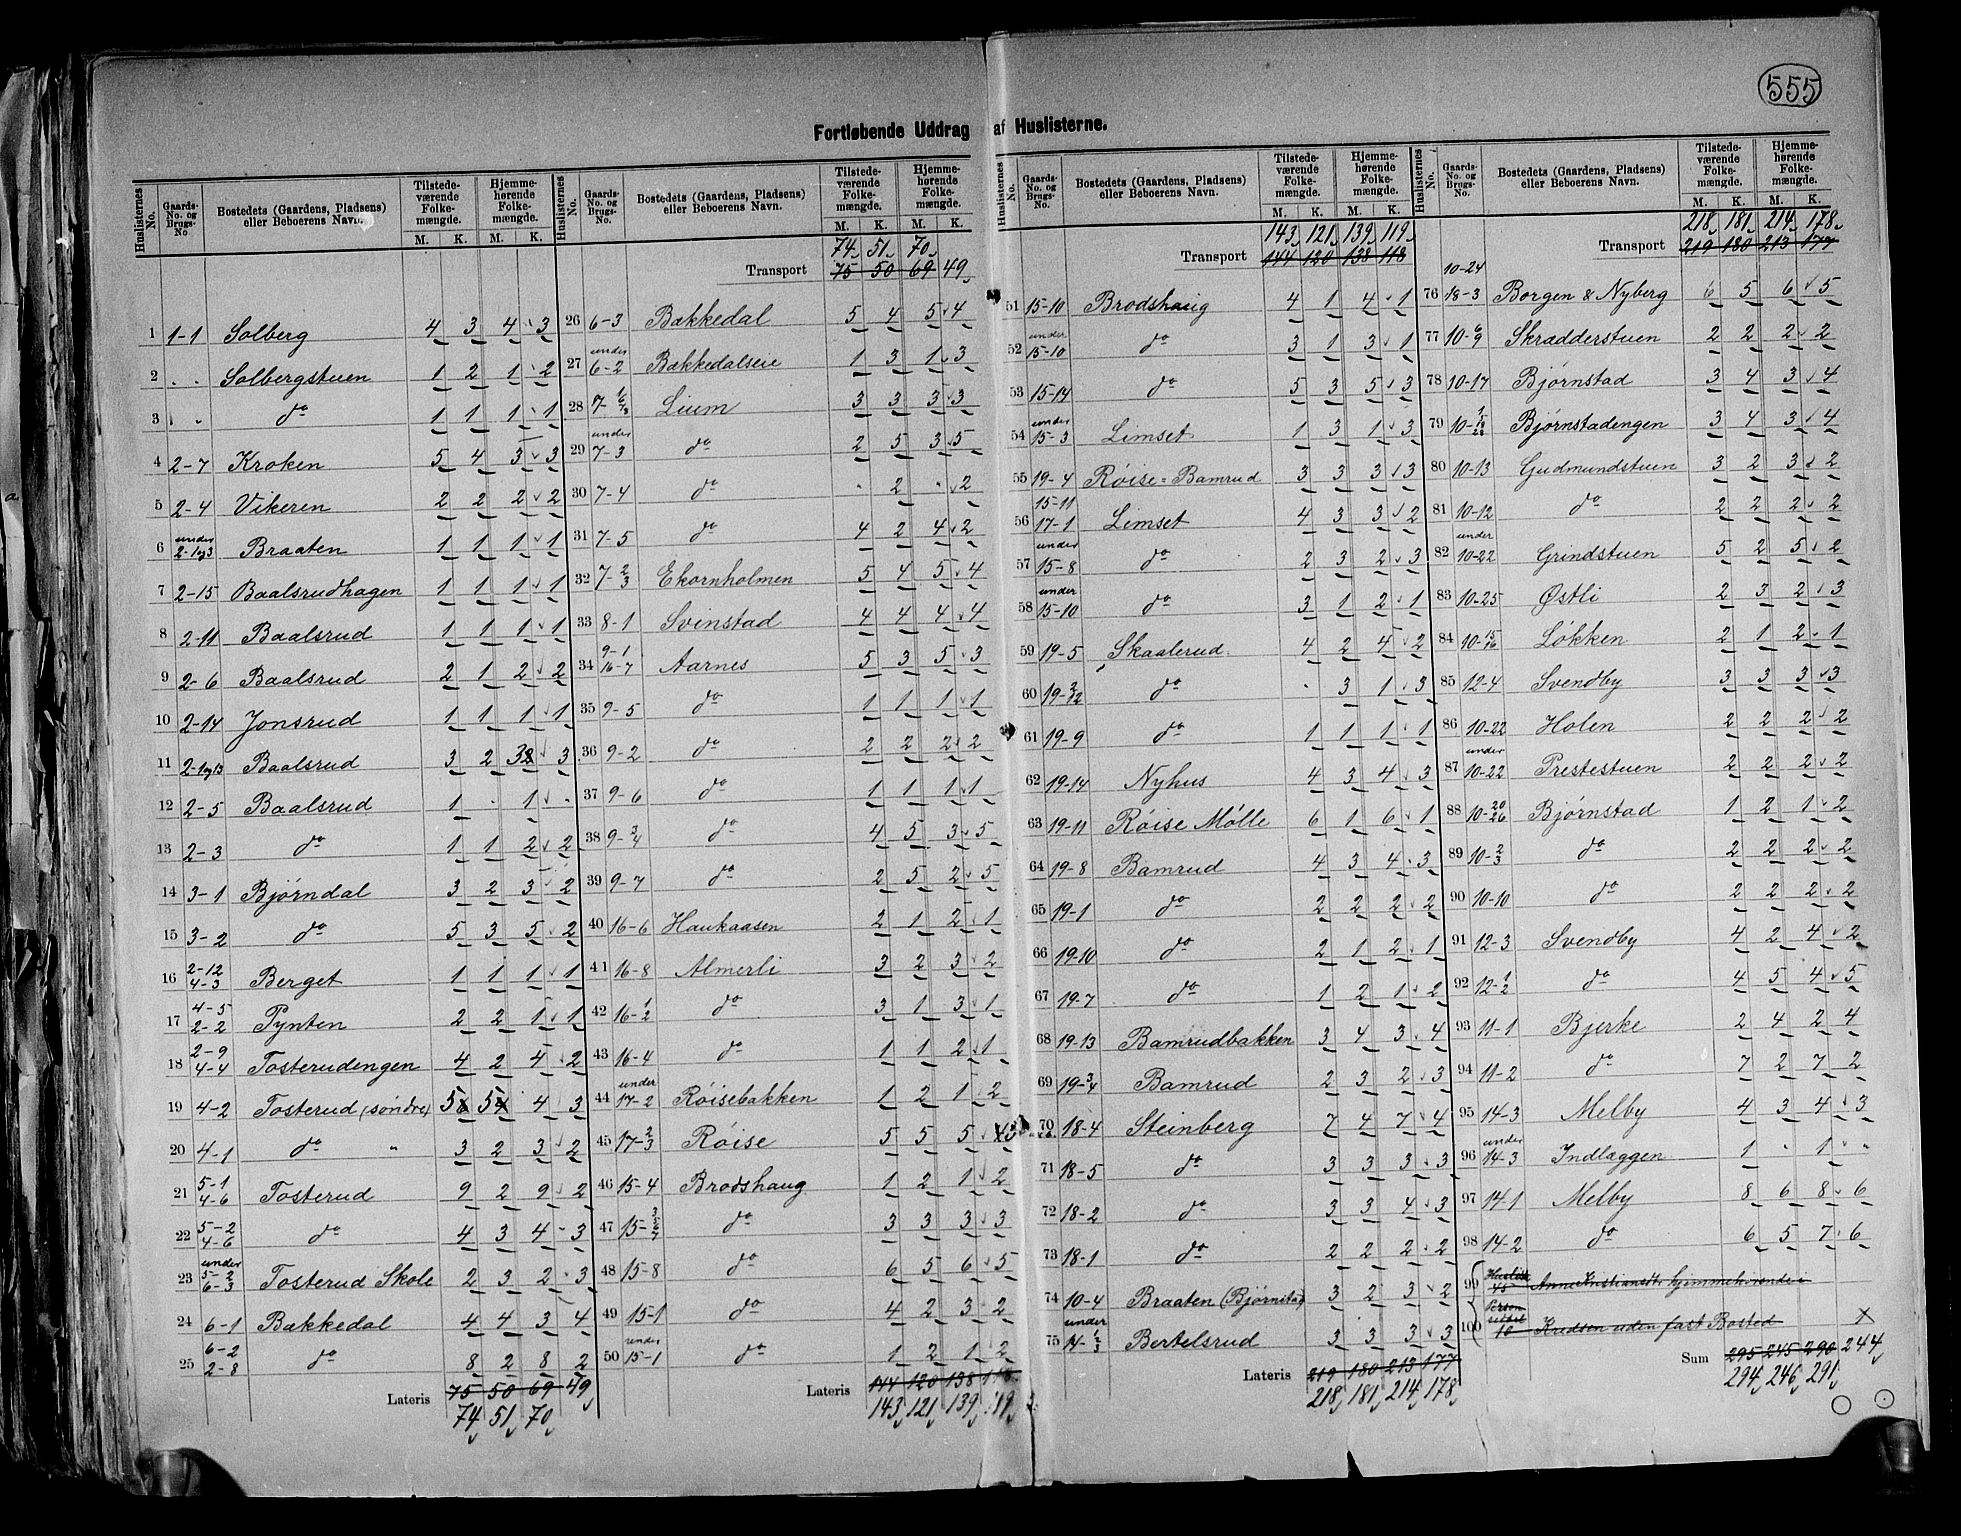 555
Fortløbende Uddrag af Huslisterne.
Huslisternes No. Gaards-No. og Brugs-No. Bostedets (Gaardens, Pladsens) eller Beboerens Navn. Tilstedeværende Folkemængde. M. K. Hjemmehørende Folkemængde. M. K.
1 1-1 Solberg 4 3 4 3
2 " " Solbergstuen 1 2 1 2
3 " " do 1 1 1 1
4 2-7 Kroken 5 4 3 3
5 2-4 Vikeren 2 2 2 2
6 under 2-1og3 Braaten 1 1 1 1
7 2-15 Baalsrudhagen 1 1 1 1
8 2-11 Baalsrud 1 1 1 1
9 2-6 Baalsrud 2 1 2 2
10 2-14 Jonsrud 1 1 1 1
11 2-1og13 Baalsrud 3 2 3 3
12 2-5 Baalsrud 1 . 1 .
13 2-3 do 1 1 2 2
14 3-1 Bjørndal 3 2 3 2
15 3-2 do 5 3 5 2
16 2-12 4-3 Berget 1 1 1 1
17 4-5 2-2 Pynten 2 2 1 1
18 2-9 4-4 Tosterudengen 4 2 4 2
19 4-2 Tosterud (søndre) 5 5 4 3
20 4-1 do " 3 2 3 2
21 5-1 4-6 Tosterud 9 2 9 2
22 5-2 4-6 do 4 3 4 3
23 under 5-2 6-3 Tosterud Skole 2 3 2 3
24 6-1 Bækkedal 4 4 3 4
25 6-2 2-8 do 8 2 8 2
Lateris 75 50 69 49
74 51 70
Huslisternes No. Gaards-No. og Brugs-No. Bostedets (Gaardens, Pladsens) eller Beboerens Navn. Tilstedeværende Folkemængde. M. K. Hjemmehørende Folkemængde. M. K.
74 51 70
Transport 75 50 69 49
26 6-3 Bækkedal 5 4 5 4
27 under 6-2 Bækkedalseie 1 3 1 3
28 7-1/6/8 Lium 3 3 3 3
29 under 7-3 do 2 5 3 5
30 7-4 do . 2 . 2
31 7-5 do 4 2 4 2
32 7-2/3 Ekornholmen 5 4 5 4
33 8-1 Svinstad 4 4 4 4
34 9-1 16-7 Aarnes 5 3 5 3
35 9-5 do 1 1 1 1
36 9-2 do 2 2 2 2
37 9-6 do 1 1 1 1
38 9-3/4 do 4 5 3 5
39 9-7 do 2 5 2 5
40 16-6 Haukaasen 2 1 2 1
41 16-8 Almerli 3 2 3 2
42 16-1/2 do 3 1 3 1
43 16-4 do 1 1 2 1
44 under 17-2 Røisebakken 1 2 1 2
45 17-2/3 Røise 5 5 5
46 15-4 Brodshaug 1 2 1 2
47 15- do 3 3 3 3
48 15-8 do 6 5 6 5
49 15-1 do 4 2 3 2
50 under 15-1 do 1 2 1 2
Lateris 144 120 138 118
143 121 139 119
Huslisternes No. Gaards-No. og Brugs-No. Bostedets (Gaardens, Pladsens) eller Beboerens Navn. Tilstedeværende Folkemængde. M. K. Hjemmehørende Folkemængde. M. K.
143 121 139 119
Transport 144 120 138 118
51 15-10 Brodshaug 4 1 4 1
52 under 15-10 do 3 1 3 1
53 15-14 do 5 3 5 3
54 under 15-3 Limset 1 3 1 3
55 19-4 Røise=Bamrud 3 3 3 3
56 15-11 17-1 Limset 4 3 3 2
57 under 15-8 do 2 3 2 3
58 under 15-10 do 3 1 2 1
59 19-5 Skaalerud 4 2 4 2
60 19-2/12 do . 3 1 3
61 19-9 do 1 1 1 1
62 19-14 Nyhus 4 3 4 3
63 19-11 Røise Mølle 6 1 6 1
64 19-8 Bamrud 4 3 4 3
65 19-1 do 2 2 2 2
66 19-10 do 2 1 2 1
67 19-7 do 1 2 1 2
68 19-13 Bamrudbakken 3 4 3 4
69 19-3/4 Bamrud 2 3 2 3
70 18-4 Steinberg 7 4 7 4
71 18-5 do 3 3 3 3
72 18-2 do 3 3 4 3
73 18-1 do 2 2 2 2
74 10-4 Braaten (Bjørnstad) 3 2 3 2
75 under 14-1/3 Bertelsrud 3 3 3 3
Lateris 219 180 213 177
218 181 214 178
Huslisternes No. Gaards-No. og Brugs-No. Bostedets (Gaardens, Pladsens) eller Beboerens Navn. Tilstedeværende Folkemængde. M. K. Hjemmehørende Folkemængde. M. K.
218 181 214 178
Transport 219 180 213 177
76 10-24 18-3 Borgen & Nyberg 6 5 6 5
77 10-6/9 Skrædderstuen 2 2 2 2
78 10-17 Bjørnstad 3 4 3 4
79 10- Bjørnstadengen 3 4 3 4
80 10-13 Gudmundstuen 3 2 3 2
81 10-12 do 2 2 2 2
82 under 10-22 Grindstuen 5 2 5 2
83 10-25 Østli 2 3 2 3
84 10-15/16 Løkken 2 1 2 1
85 12-4 Svendby 3 3 3 3
86 10-22 Holen 2 2 2 2
87 under 10-22 Prestestuen 2 2 2 2
88 10-20/26 Bjørnstad 1 2 1 2
89 10-2/3 do 2 2 2 2
90 10-10 do 2 2 2 2
91 12-3 Svendby 4 2 4 2
92 12-1/2 do 4 5 4 5
93 11-1 Bjerke 2 4 2 4
94 11-2 do 7 2 7 2
95 14-3 Melby 4 3 4 3
96 under 14-3 Indlæggen 1 " 1 "
97 14-1 Melby 8 6 8 6
98 14-2 do 6 5 7 6
99 Husliste 45 Anne Kristiansdtr hjemmehørende i
100 Person 10 Knudsen uden fast Bosted X
Sum 295 245 290 244
294 246 291